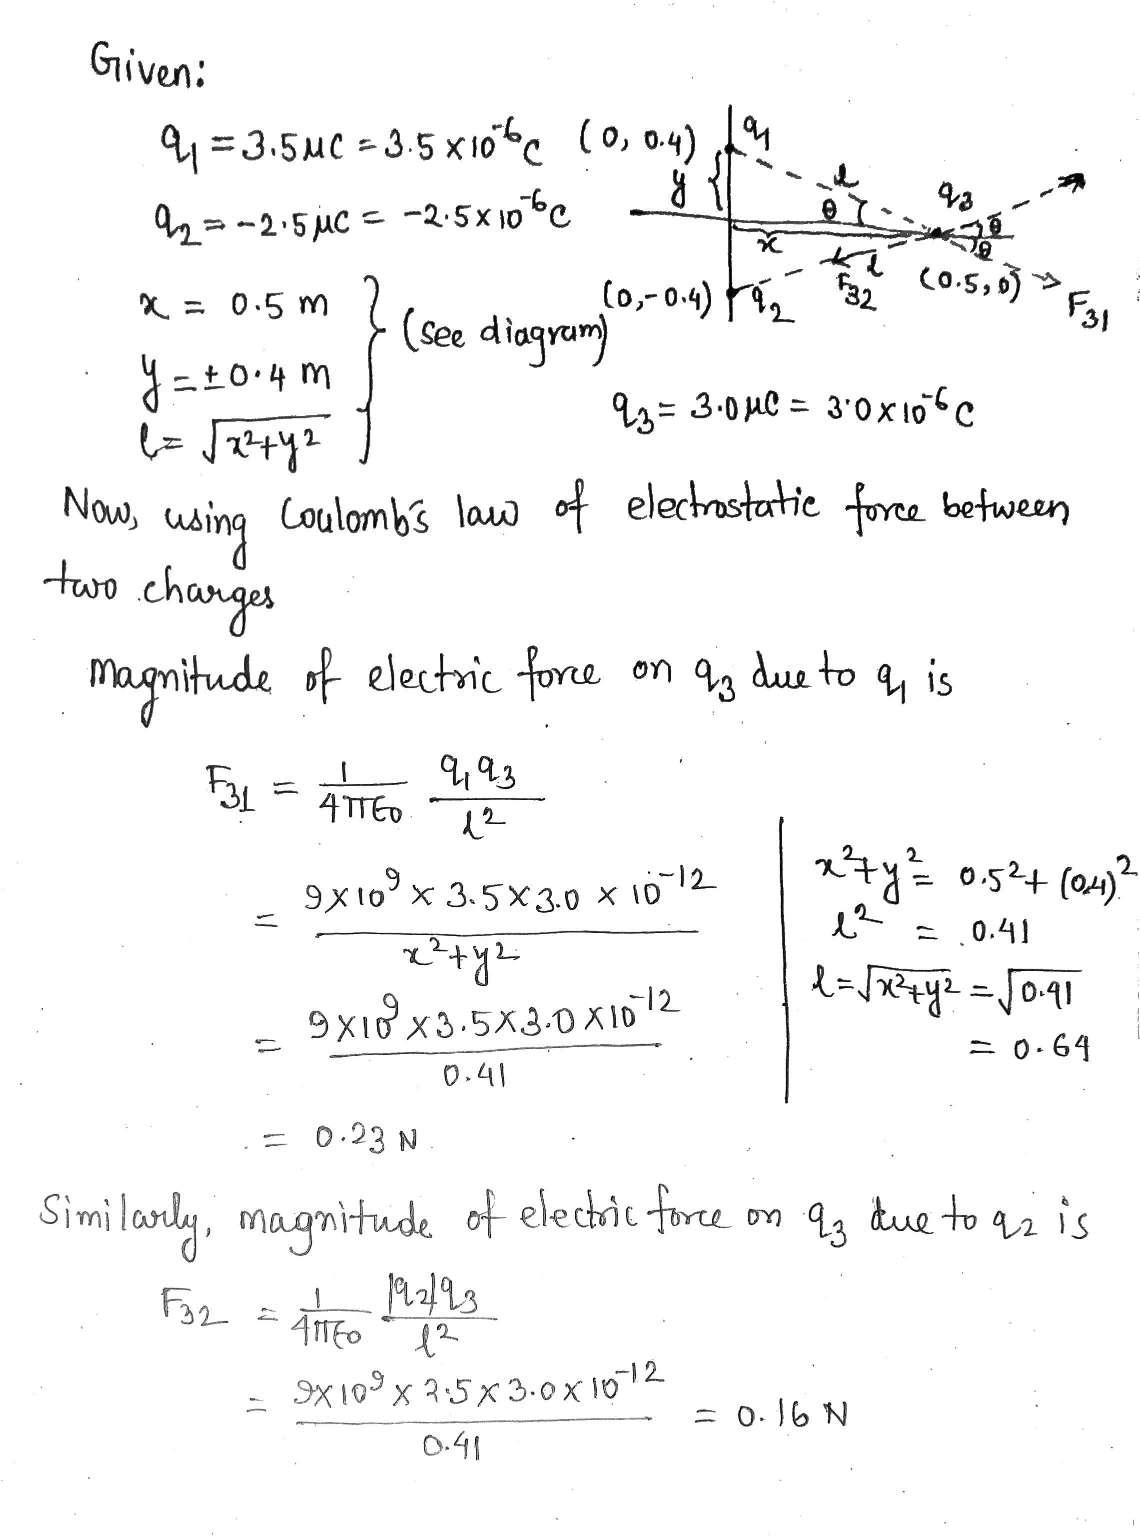 Given:
q₁ = 3.5 μC = 3.5 × 10⁻⁶ C (0, 0.4) q₁
y l q₃
θ θ
q₂ = -2.5 μC = -2.5 × 10⁻⁶ C x θ
l (0.5, 0)
F₃₂ F₃₁
x = 0.5 m (0, -0.4) q₂
(see diagram)
y = ±0.4 m
q₃ = 3.0 μC = 3.0 × 10⁻⁶ C
l = √x²+y²
Now, using Coulomb's law of electrostatic force between
two charges
magnitude of electric force on q₃ due to q₁ is
F₃₁ = 1/4πε₀ q₁q₃/l²
= 9×10⁹ × 3.5×3.0 × 10⁻¹²/x²+y²
= 9×10⁹ ×3.5×3.0 ×10⁻¹²/0.41
= 0.23 N
x²+y² = 0.5² + (0.4)²
l² = 0.41
l = √x²+y² = √0.41
= 0.64
Similarly, magnitude of electric force on q₃ due to q₂ is
F₃₂ = 1/4πε₀ |q₂|q₃/l²
= 9×10⁹ × 2.5 × 3.0 × 10⁻¹²/0.41 = 0.16 N